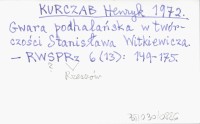 KURCZAB Henryk 1972.
Gwara podhalańska w twór-
czości Stanisława Witkiewicza
— RWSPRz 6 (13): 149-175.
?
Rzeszów